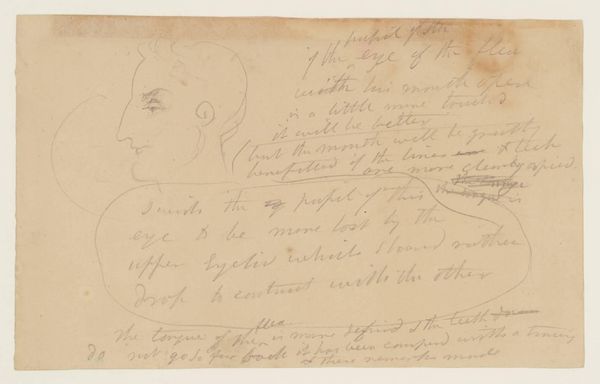 pupil of the
if the eye of the flea
with his mouth open
is a little more touched
it will be better
but the mouth will be greatly
benefitted if the lines & teeth
are more clearly copied
I wish the pupil of this
eye to be more lost by the
upper Eyelid which should rather
drop to contrast with the other
flea
The tongue of the is more defined & the teeth
do not go so far back it has been compared with a tracing
& these remarks made